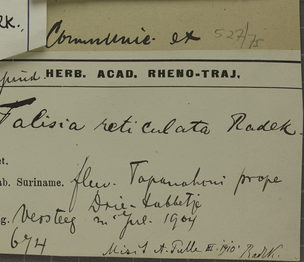 Communic. ex 527/75
HERB. ACAD. RHENO-TRAJ.
Talisia reticulata Radlk.
et.
ab. Suriname. fluv. Tapanahoni prope
Drie-Tabbetje
g. Versteeg m. Jul. 1904
674
Misit A. Pulle III 1910. Radlk.